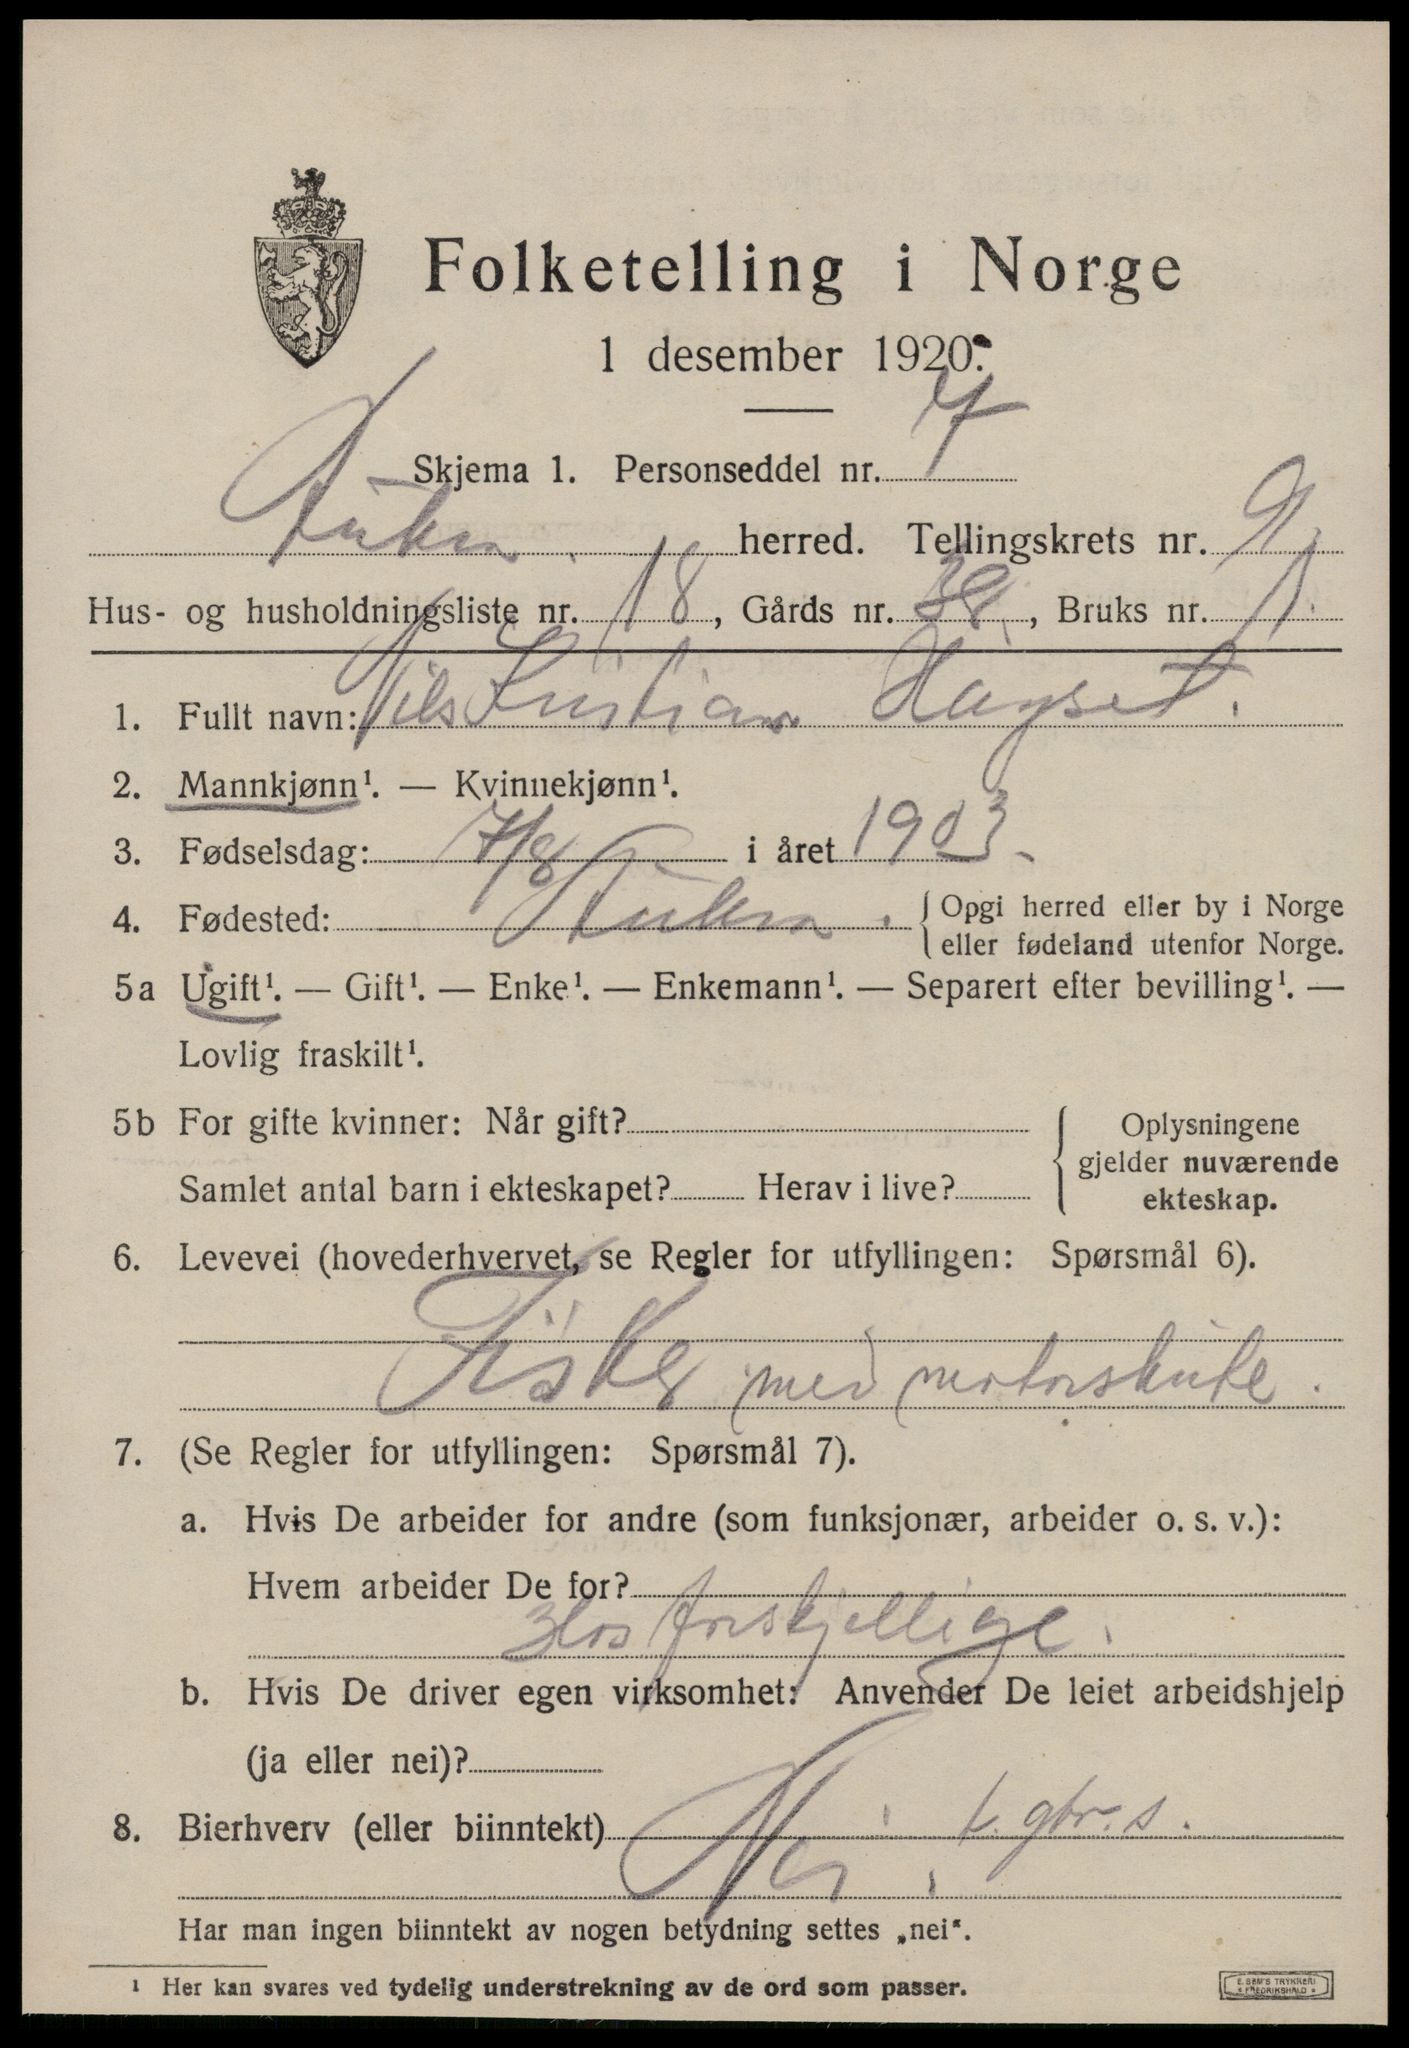 Folketelling i Norge
1 desember 1920.
Skjema 1. Personseddel nr. 7
herred. Tellingskrets nr. 9
Hus- og husholdningsliste nr. 18, Gårds nr. 38, Bruks nr. 1.
1. Fullt navn: Nils Kristian Høgset.
2. Mannkjønn¹. — Kvinnekjønn¹.
3. Fødselsdag: 7/8 i året 1903.
4. Fødested: { Opgi herred eller by i Norge
eller fødeland utenfor Norge.
5a Ugift¹. — Gift¹. — Enke¹. — Enkemann¹. — Separert efter bevilling¹. —
Lovlig fraskilt¹.
5b For gifte kvinner: Når gift? { Oplysningene
gjelder nuværende
Samlet antal barn i ekteskapet? Herav i live? ekteskap.
6. Levevei (hovederhvervet, se Regler for utfyllingen: Spørsmål 6).
Fisker med motorskute.
7. (Se Regler for utfyllingen: Spørsmål 7).
a. Hvis De arbeider for andre (som funksjonær, arbeider o. s. v.):
Hvem arbeider De for?
Hos forskjellige.
b. Hvis De driver egen virksomhet: Anvender De leiet arbeidshjelp
(ja eller nei)?
8. Bierhverv (eller biinntekt) Nei. t. gbr. s.
Har man ingen biinntekt av nogen betydning settes „nei“.
¹ Her kan svares ved tydelig understrekning av de ord som passer.
E. SEM'S TRYKKERI
* FREDRIKSHALD *